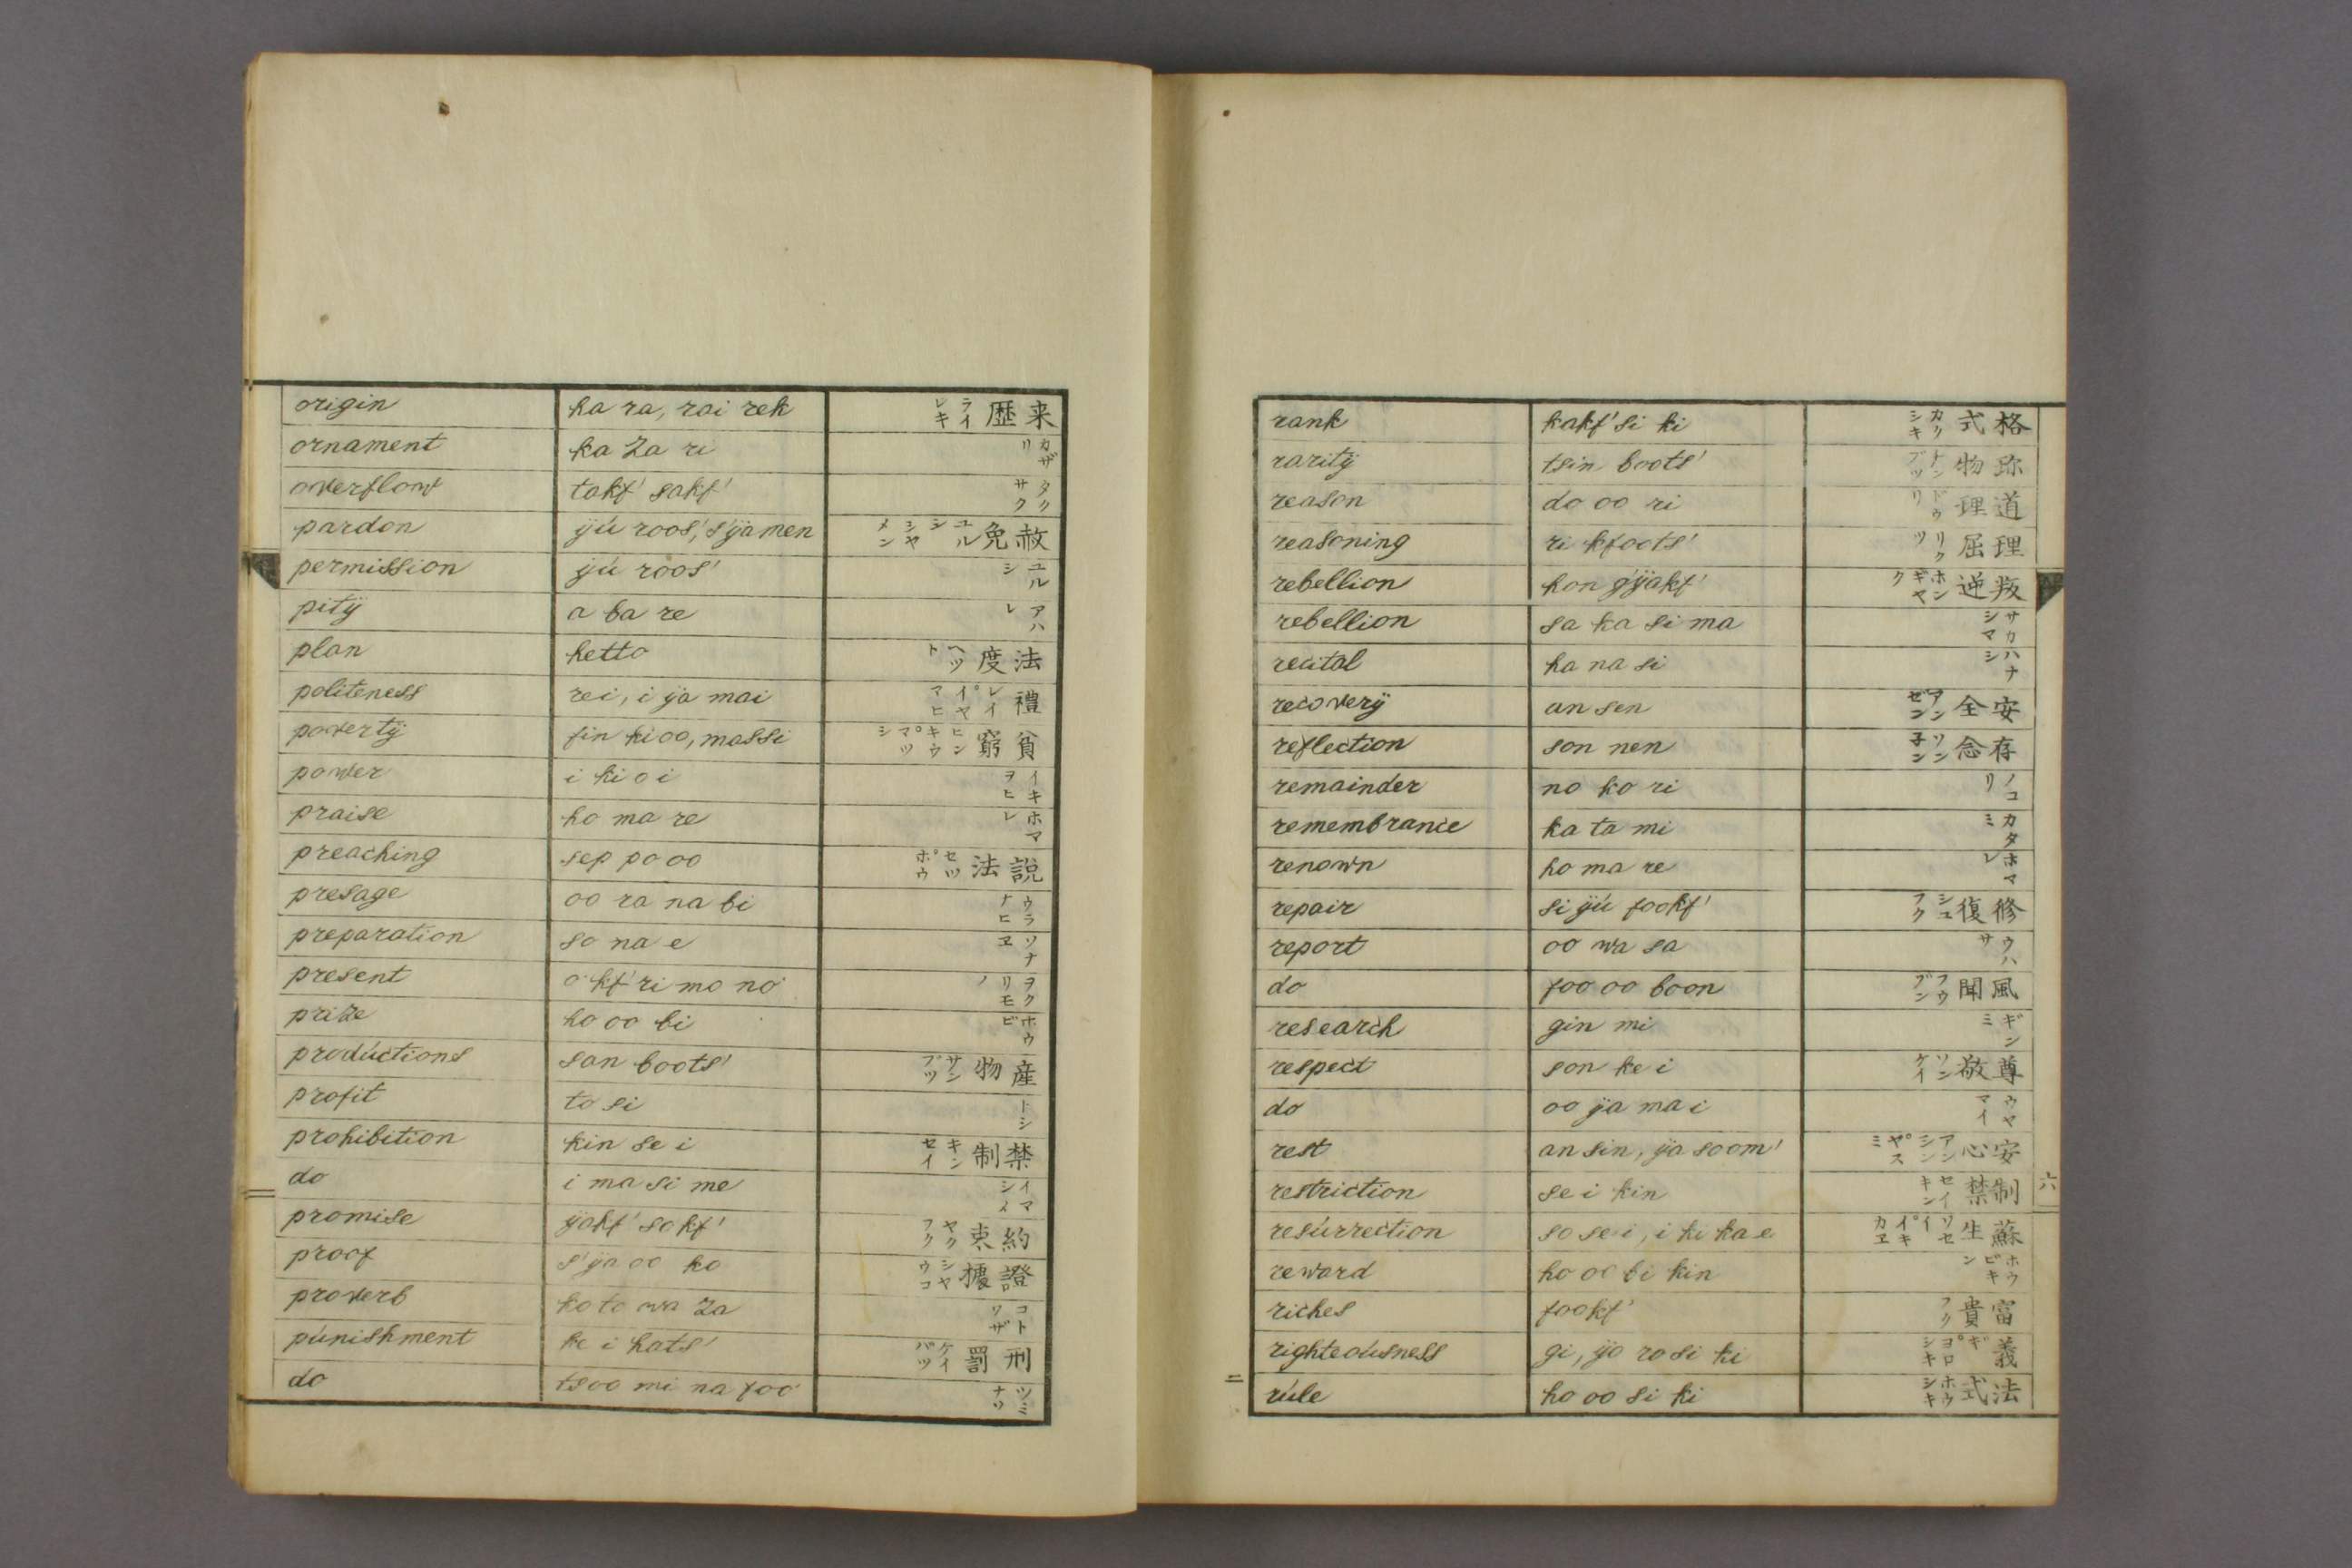 origin ha ra, rai rek 来歴 ライレキ
ornament ka za ri カザリ
overflow takf' sakf' タクサク
pardon ÿú roos', s'ÿa men 赦免 ユルシシヤメン
permission ÿú roos' ユルシ
pitÿ a ba re アハレ
plan hetto 法度 ヘツト
politeness rei, i ÿa mai 禮 レイ イヤマヒ
povertÿ fin ki oo, massi 貧窮 ヒンキウ マツシ
power i ki o i イキヲヒ
praise ho ma re ホマレ
preaching sep po oo 説法 セツポウ
presage oo ra na bi ウラナヒ
preparation so na e ソナヱ
present o kf' ri mo no ヲクリモノ
prize ho oo bi ホウビ
prodúctions san boots' 産物 サンブツ
profit to si トシ
prohibition kin se i 禁制 キンセイ
do i ma si me イマシメ
promise ÿakf' sokf' 約束 ヤクフク
proof s'ÿa oo ko 證據 シヤウコ
proverb ko to wa za コトワザ
púnishment ke i hats' 刑罰 ケイバツ
do tsoo mi na foo ツミナウ
rank kakf' si ki 格式 カクシキ
raritÿ tsin boots' 珎物 チンブツ
reason do oo ri 道理 ドウリ
reasoning ri kfoots' 理屈 リクツ
rebellion hon g'ÿakf' 叛逆 ホンギヤク
rebellion sa ka si ma サカシマ
recital ha na si ハナシ
recoverÿ an sen 安全 アンゼン
reflection son nen 存念 ソン子ン
remainder no ko ri ノコリ
remembrance ka ta mi カタミ
renown ho ma re ホマレ
repair si ÿú fookf' 修復 シユフク
report oo wa sa ウハサ
do foo oo boon 風聞 フウブン
research gin mi ギンミ
respect son ke i 尊敬 ソンケイ
do oo ÿa ma i ウヤマイ
rest an sin, ÿa soom' 安心 アンシン ヤスミ
restriction se i kin 制禁 セイキン
resúrrection so se i, i ki ka e 蘇生 ソセイ イキカヱ
reward ho oo bi kin ホウビキン
riches fookf' 富貴 フク
righteoúsness gi, ÿo ro si ki 義 ギ ヨロシキ
rúle ho oo si ki 法式 ホウシキ
六